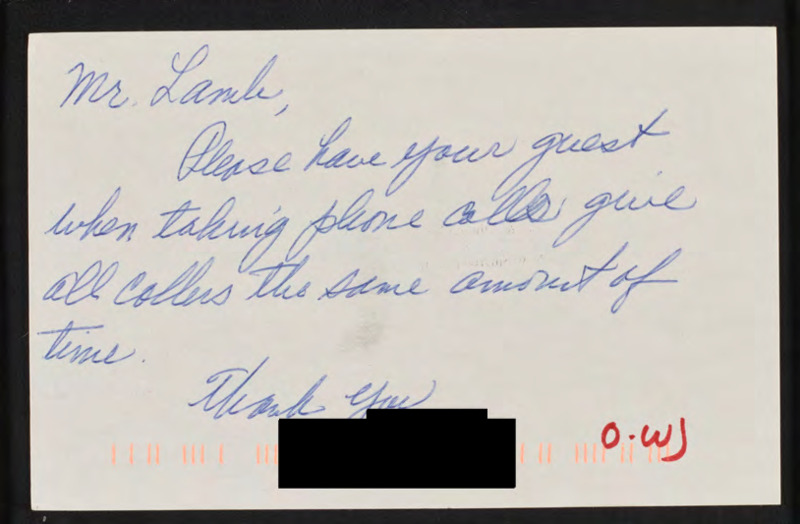 Mr. Lamb,
Please have your guest
when taking phone calls give
all callers the same amount of
time.
Thank You
O-WJ